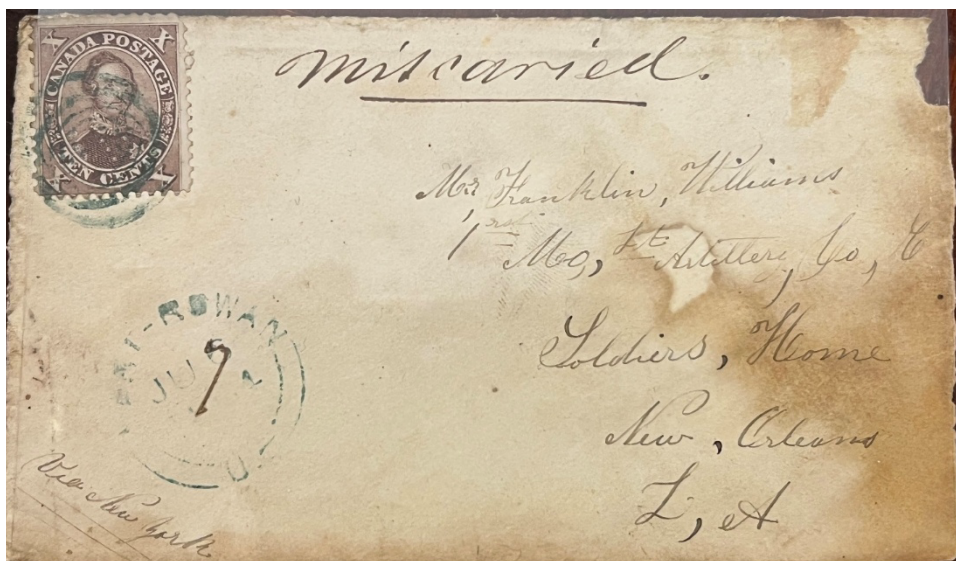 X CANADA POSTAGE X
X TEN CENTS X
miscaried.
Mr Franklin, Williams
1rst Mo, Lt Artillery, Co, E
Soldiers, Home
New, Orleans
L, A
ROWAN
JU
9
Via New York